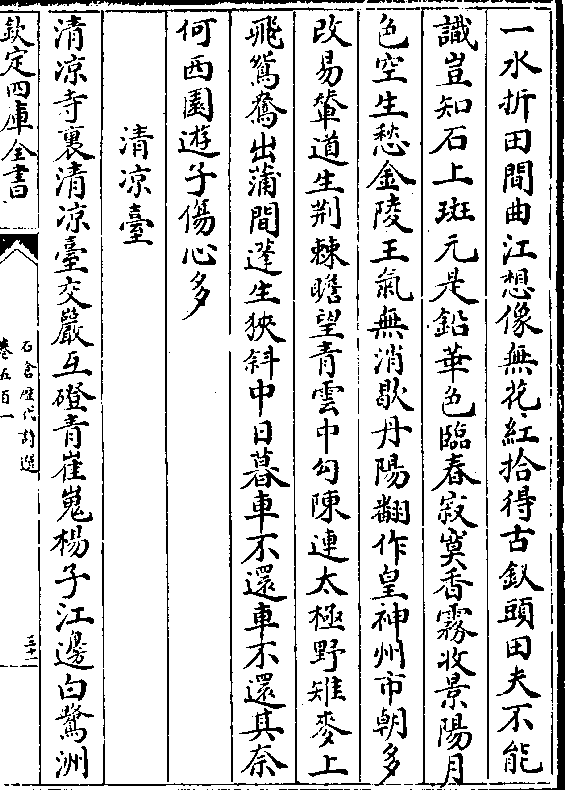 一水折田間曲江想像無花紅拾得古釵頭田夫不能
識豈知石上斑元是鉛華色臨春寂寞香霧收景陽月
色空生愁金陵王氣無消歇丹陽翻作皇神州市朝多
改易輦道生荆棘瞻望青雲中勾陳連太極野雉麥上
飛鴛鴦出蒲間蓬生狹斜中日暮車不還車不還其奈
何西園遊子傷心多
清凉臺
清凉寺裏清凉臺交嚴互磴青崔嵬楊子江邊白鷺洲
欽定四庫全書
石倉歷代詩選
卷五百一
三十一